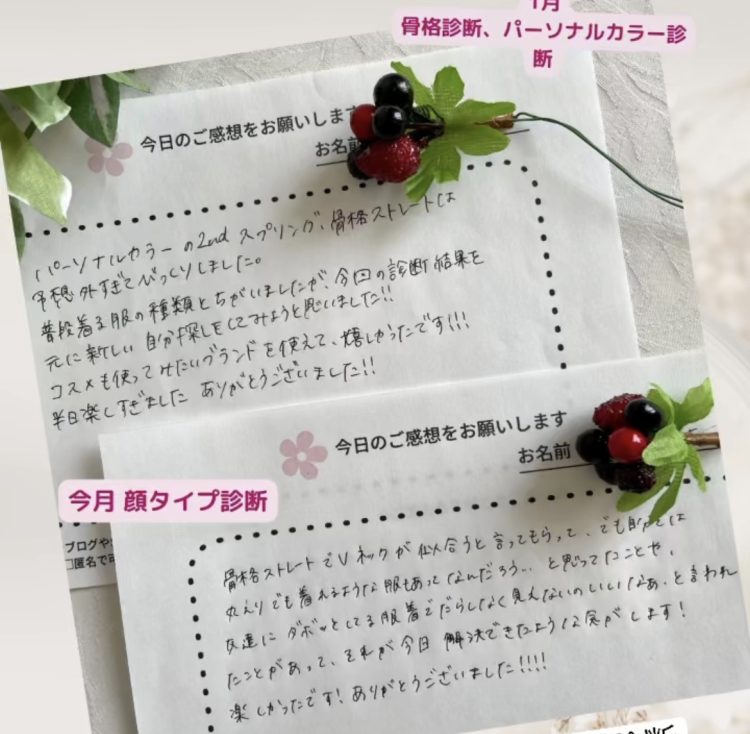 1月
骨格診断、パーソナルカラー診
断
今日のご感想をお願いします
お名前
パーソナルカラーの2ndスプリング、骨格ストレートは
予想外すぎてびっくりしました。
普段着る服の種類とちがいましたが、今回の診断結果を
元に新しい自分探しをしてみようと思いました!!
コスメも使ってみたいブランドを使えて、嬉しかったです!!!
半日楽しすぎました ありがとうございました!!
今日のご感想をお願いします
お名前
今月 顔タイプ診断
ブログや
□匿名で可
骨格ストレートでVネックが似合うと言ってもらって、でも自分では
丸えりでも着れるような服もあってなんだろう... と思ってたことや、
友達にダボッとしてる服着てだらしなく見えないのいいなぁ、と言われ
たことがあって、それが今日解決できたような気がします!
楽しかったです! ありがとうございました!!!!